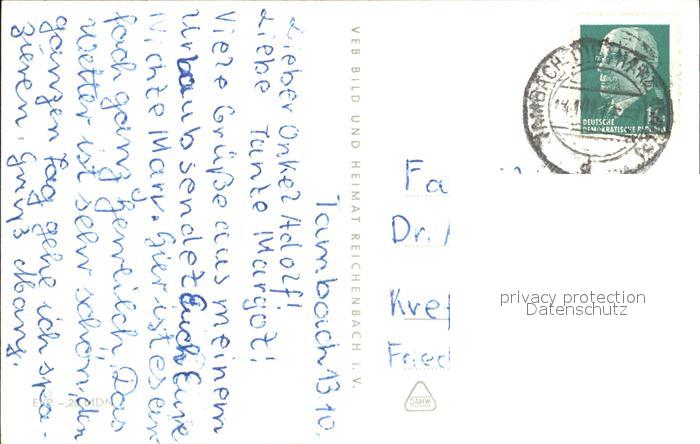 Tambach 13.10.
Lieber Onkel Adolf!
Liebe Tante Margot!
Viele Grüße aus meinem
Urlaub sendet Euch Eure
Nichte Mary. Hier ist es ein
fach ganz herrlich. Das
Wetter ist sehr schön, den
ganzen Tag gehe ich spa-
zieren. Gruß
VEB BILD UND HEIMAT REICHENBACH I. V.
DEUTSCHE
DEMOKRATISCHE
TAMBACH-DIETHARZ
Fa
Dr.
Kref
Fried
privacy protection
Datenschutz
DAMW